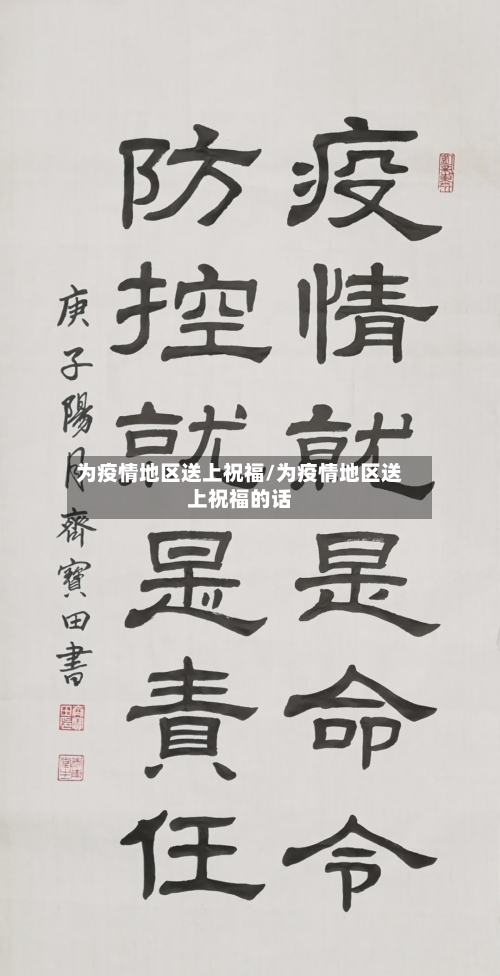 疫情就是命令
防控就是責任
庚子陽月齊寶田書
为疫情地区送上祝福/为疫情地区送
上祝福的话